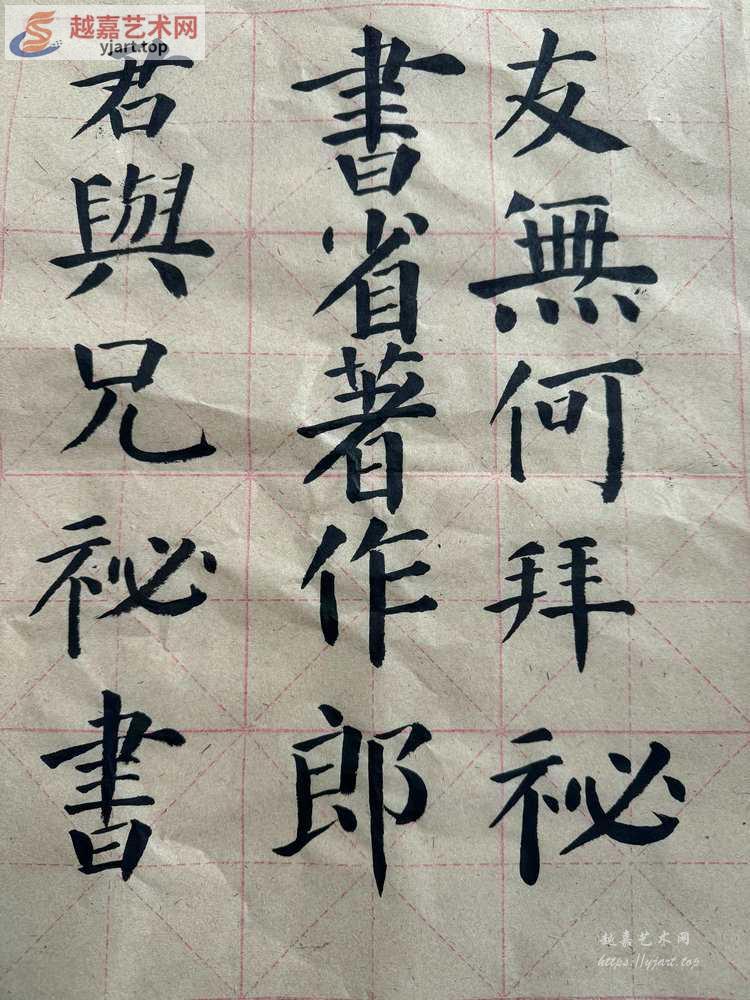 越嘉艺术网
yjart.top
友無何拜祕
書省著作郎
君與兄祕書
越嘉艺术网
https://yjart.top